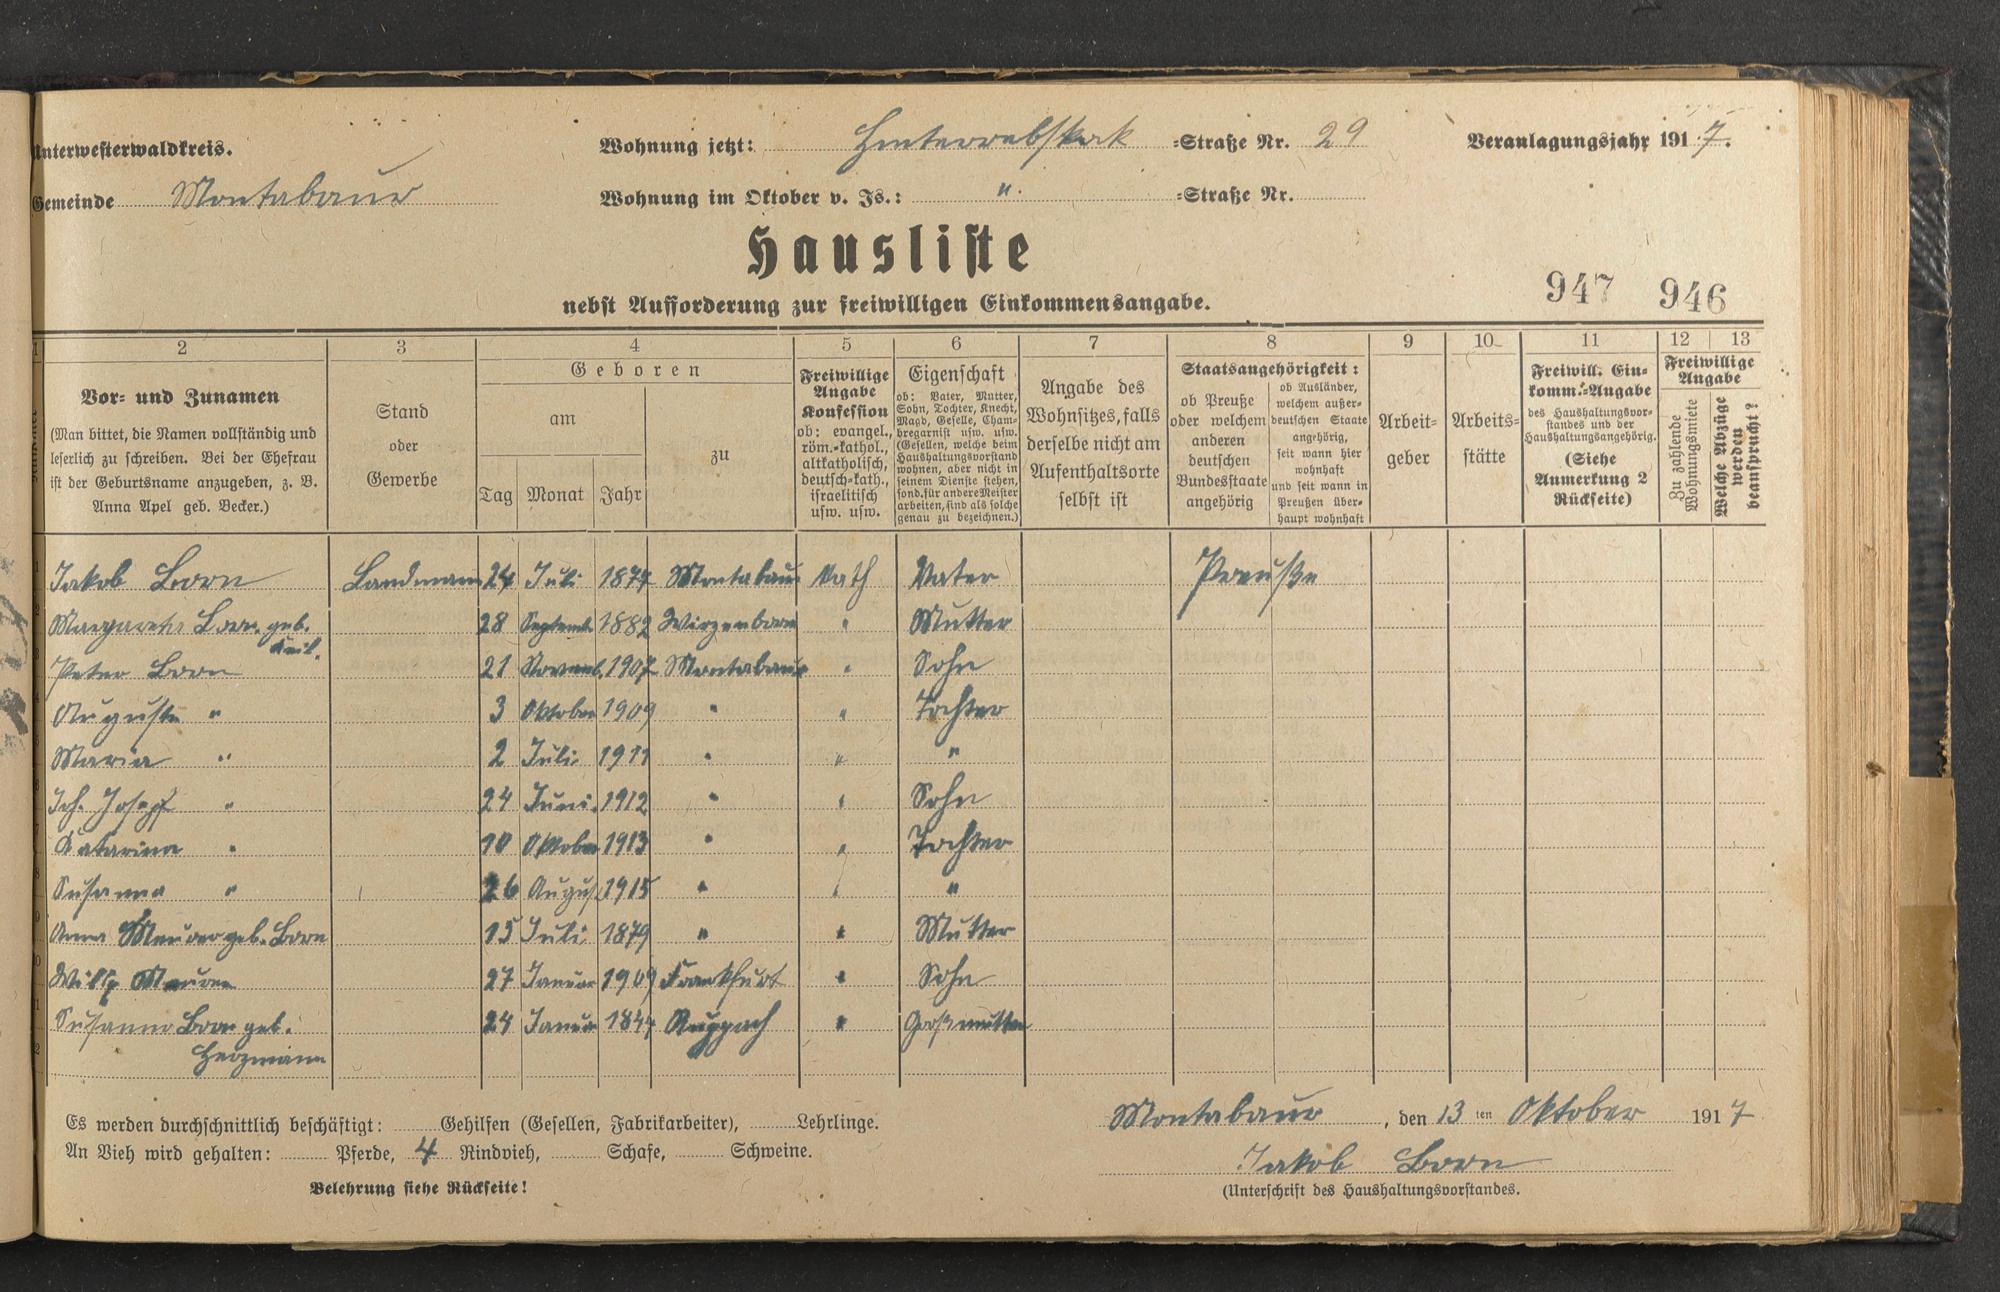 Unterwesterwaldkreis.
Wohnung jetzt: Hinterrebstock =Straße Nr. 29
Veranlagungsjahr 1917.
Gemeinde Montabaur
Wohnung im Oktober v. Js.: " =Straße Nr.
Hausliste
nebst Aufforderung zur freiwilligen Einkommensangabe.
947 946
1 2 3 4 5 6 7 8 9 10 11 12 13
Vor- und Zunamen
(Man bittet, die Namen vollständig und
leserlich zu schreiben. Bei der Ehefrau
ist der Geburtsname anzugeben, z. B.
Anna Apel geb. Becker.)
Stand
oder
Gewerbe
Geboren
am
Tag Monat Jahr
zu
Freiwillige
Angabe
Konfession
ob: evangel.,
röm.-kathol.,
altkatholisch,
deutsch-kath.,
israelitisch
usw. usw.
Eigenschaft
ob: Vater, Mutter,
Sohn, Tochter, Knecht,
Magd, Geselle, Cham-
bregarnist usw. usw.
(Gesellen, welche beim
Haushaltungsvorstand
wohnen, aber nicht in
seinem Dienste stehen,
sond. für andere Meister
arbeiten, sind als solche
genau zu bezeichnen.)
Angabe des
Wohnsitzes, falls
derselbe nicht am
Aufenthaltsorte
selbst ist
Staatsangehörigkeit:
ob Preuße
oder welchem
anderen
deutschen
Bundesstaate
angehörig
ob Ausländer,
welchem außer-
deutschen Staate
angehörig,
seit wann hier
wohnhaft
und seit wann in
Preußen über-
haupt wohnhaft
Arbeit-
geber
Arbeits-
stätte
Freiwill. Ein-
komm.-Angabe
des Haushaltungsvor-
standes und der
Haushaltungsangehörig.
(Siehe
Anmerkung 2
Rückseite)
Freiwillige
Angabe
Zu zahlende
Wohnungsmiete
Welche Abzüge
werden
beansprucht?
Jakob Born Landmann 24 Juli 1877 Montabaur kath Vater Preuße
Margareta Born geb. 28 Septemb. 1882 Wirzenborn " Mutter
Keil.
Peter Born 21 Novemb. 1907 Montabaur " Sohn
Auguste " 3 Oktober 1909 " " Tochter
Maria " 2 Juli 1911 " " "
Joh. Josepf " 24 Juni 1912 " " Sohn
Katarina " 10 Oktober 1913 " " Tochter
Susanna " 26 August 1915 " " "
Anna Meurer geb. Born 15 Juli 1879 " " Mutter
Willy Meurer 27 Januar 1909 Frankfurt " Sohn
Susanna Born geb. 24 Januar 1847 Ruppach " Großmutter
Herzmann
Es werden durchschnittlich beschäftigt: Gehilfen (Gesellen, Fabrikarbeiter), Lehrlinge.
An Vieh wird gehalten: Pferde, 4 Rindvieh, Schafe, Schweine.
Belehrung siehe Rückseite!
Montabaur, den 13ten Oktober 1917
Jakob Born
(Unterschrift des Haushaltungsvorstandes.